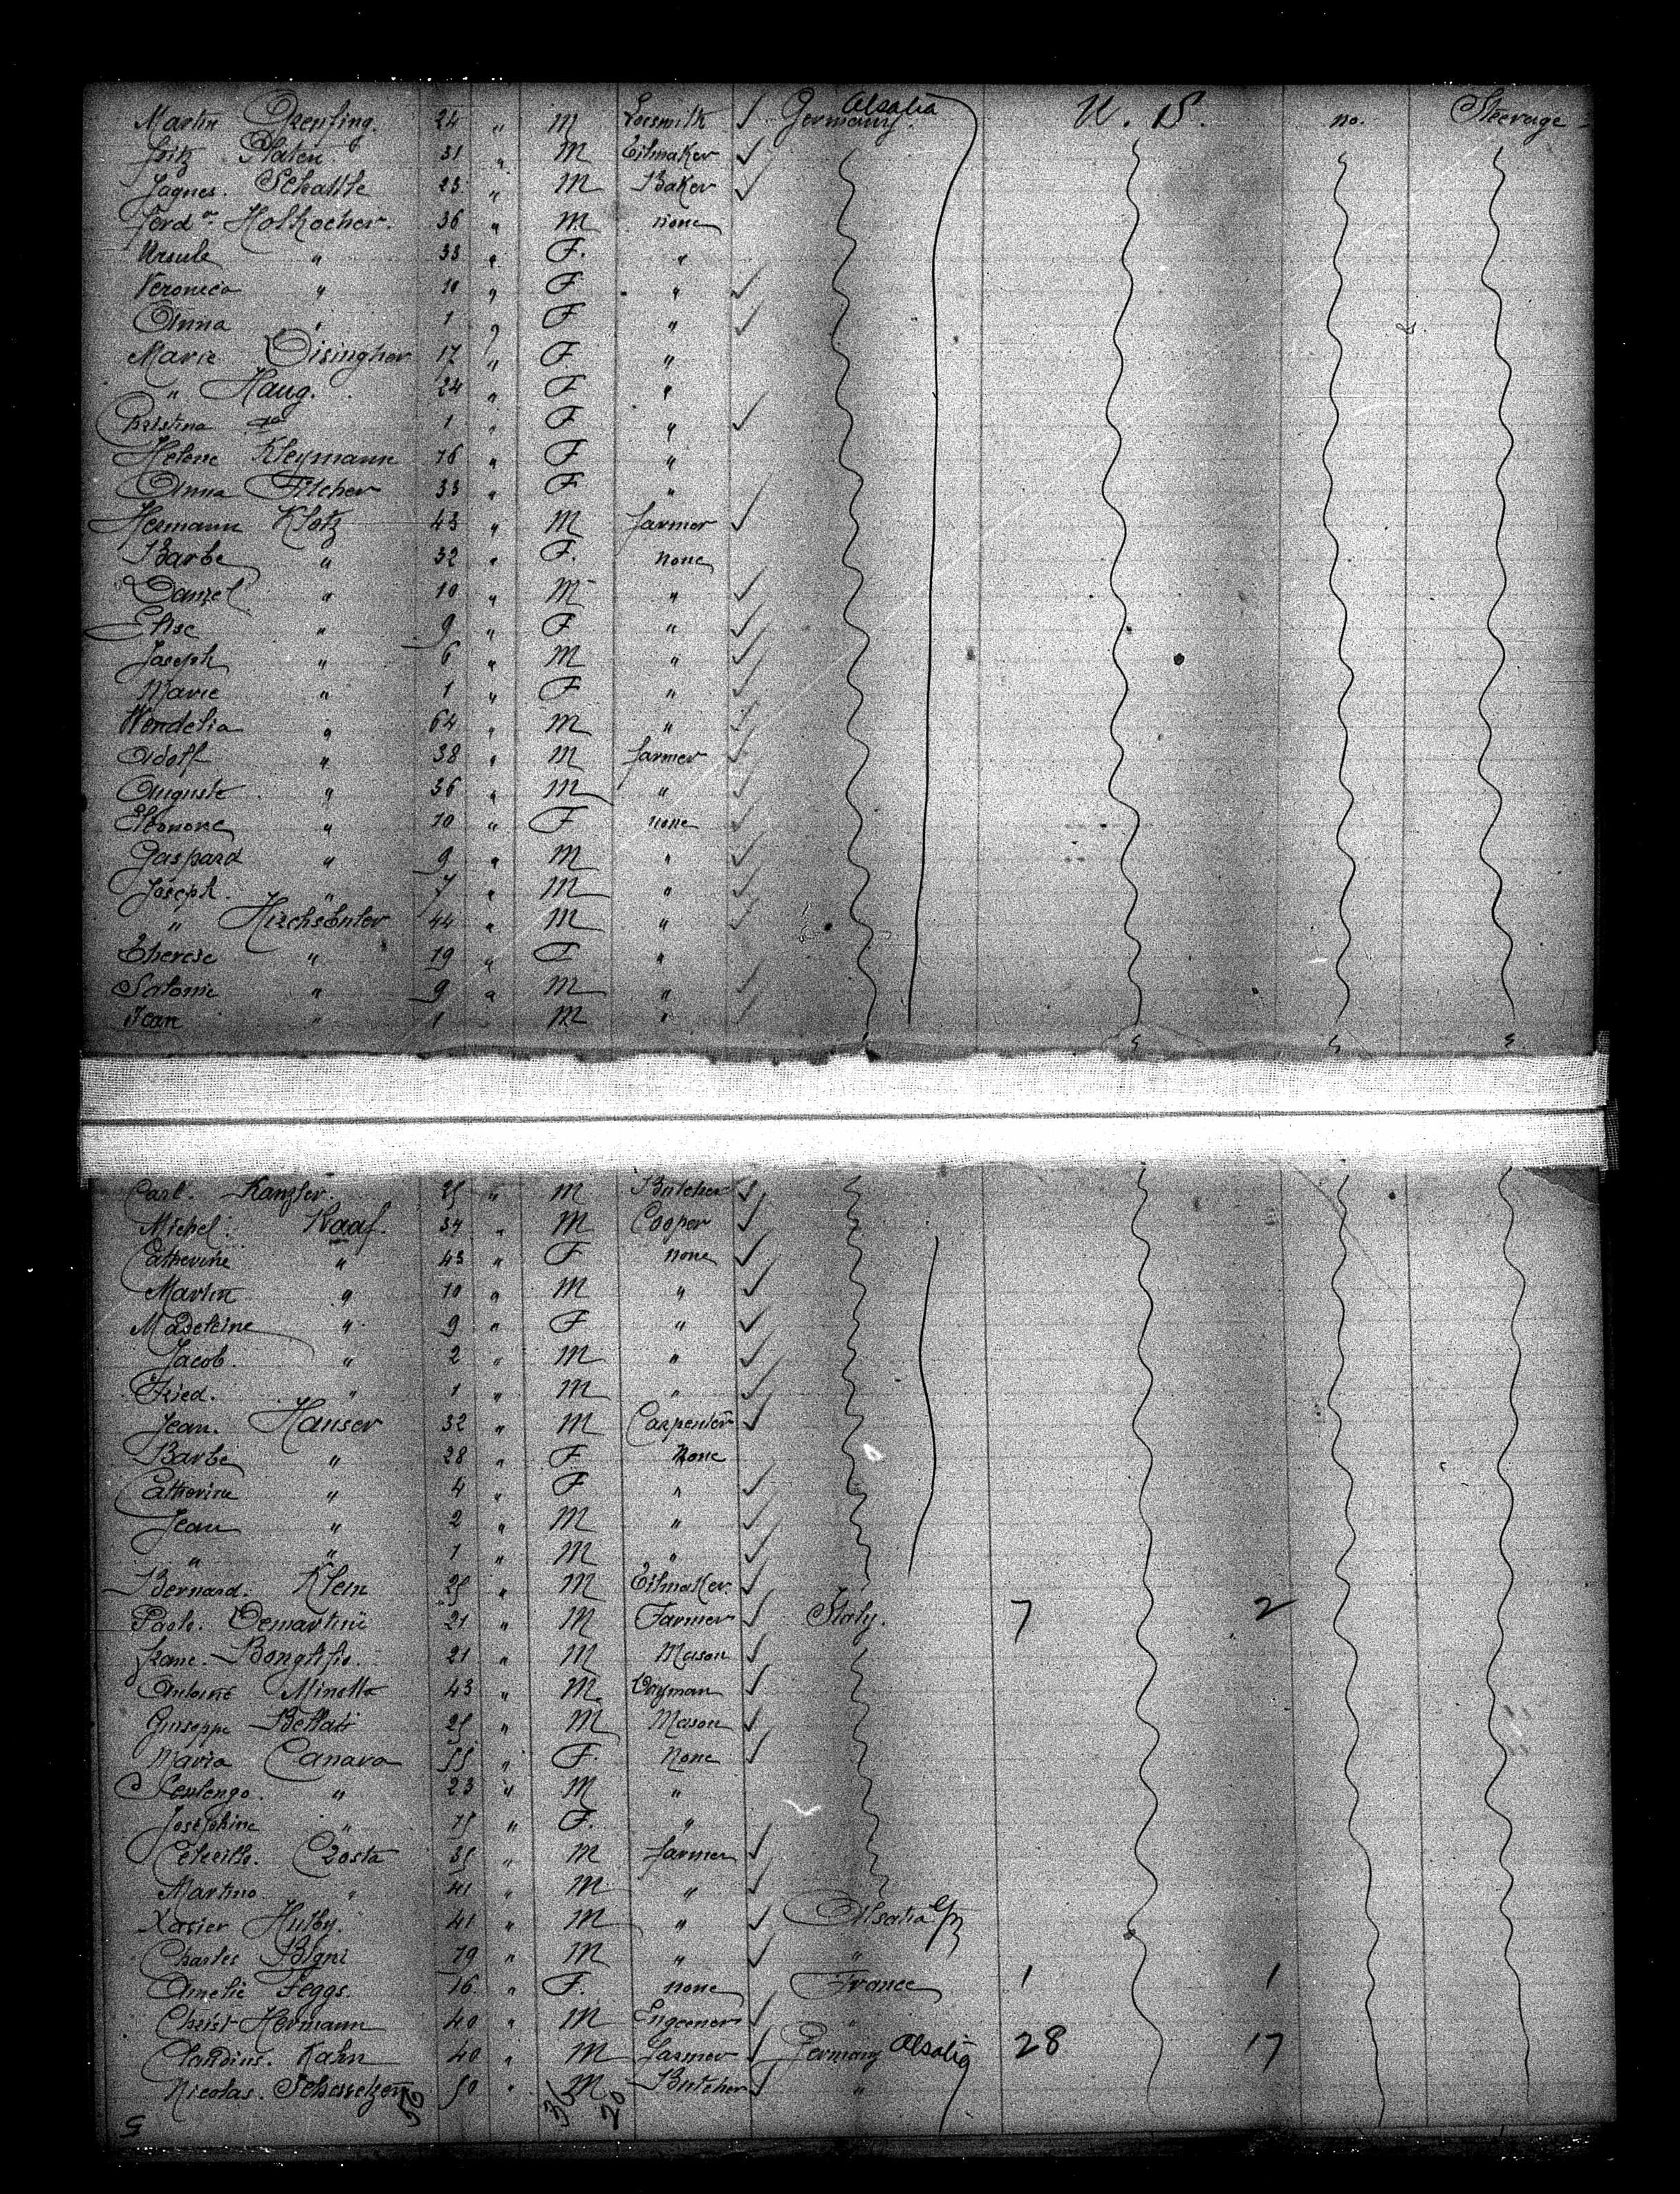 Martin 24 " M Locsmith ✓ Germany Alsatia U. S. no. Steerage
Fritz Platen 31 " M ✓
Jagnes. Schattle 23 " M Baker ✓
Ferd. Holkocher. 36 " M none
Ursule " 33 " F. "
Veronica " 10 " F " ✓
Anna " 1 " F " ✓
Marie Disingher 17 " F "
" Haug. 24 " F "
Christina do 1 " F " ✓
Helene Kleymann 16 " F "
Anna Filcher 33 " F "
Hermann Klotz 43 " M farmer ✓
Barbe " 32 " F. none
Daniel " 10 " M " ✓
Elise " 9 " F " ✓
Joseph " 6 " M " ✓
Marie " 1 " F " ✓
Wendelia " 64 " M " ✓
Adolf " 38 " M farmer ✓
Auguste " 36 " M " ✓
Eleonore " 10 " F none ✓
Gaspard " 9 " M " ✓
Joseph. " 7 " M " ✓
" 44 " M " ✓
Therese " 19 " F "
Salomie " 9 " M " ✓
Jean " 1 M " ✓
Carl. Kanzler. 25 " M Butcher ✓
Michel. Kaaf. 34 " M Cooper ✓
Catherine " 43 " F none ✓
Martin " 10 " M " ✓
Madeleine " 9 " F " ✓
Jacob. " 2 " M " ✓
Fried. " 1 " M " ✓
Jean. Hauser 32 " M Carpenter ✓
Barbe " 28 " F. None
Catherine " 4 " F " ✓
Jean " 2 " M " ✓
" " 1 " M " ✓
Bernard. Klein 25 " M ✓
Paolo. Demartini 21 " M Farmer ✓ Italy. 7 2
Franc. 21 " M Mason ✓
Antoine Minetta 43 " M. ✓
Giuseppe Bellati 25 " M Mason ✓
Maria Canava 55 " F. None ✓
" 23 " M "
Josephine " 15 " F. "
Costa 35 " M farmer ✓
Martino " 41 " M " ✓
Xavier Hutby. 41 " M " ✓ Alsatia
Charles Bigni 19 " M " ✓ "
Amelie Feggs. 16 " F. none France 1 1
Christ Hermann 40 " M Engeener ✓ "
Claudius. Kahn 40 " M farmer ✓ Germany Alsatia 28 17
Nicolas. 50 " M Butcher ✓ "